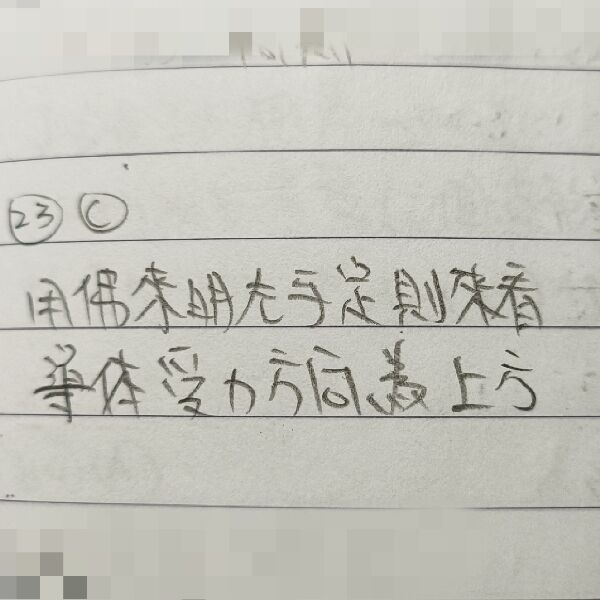 23 C
用佛來明左手定則來看
導体受力方向為上方